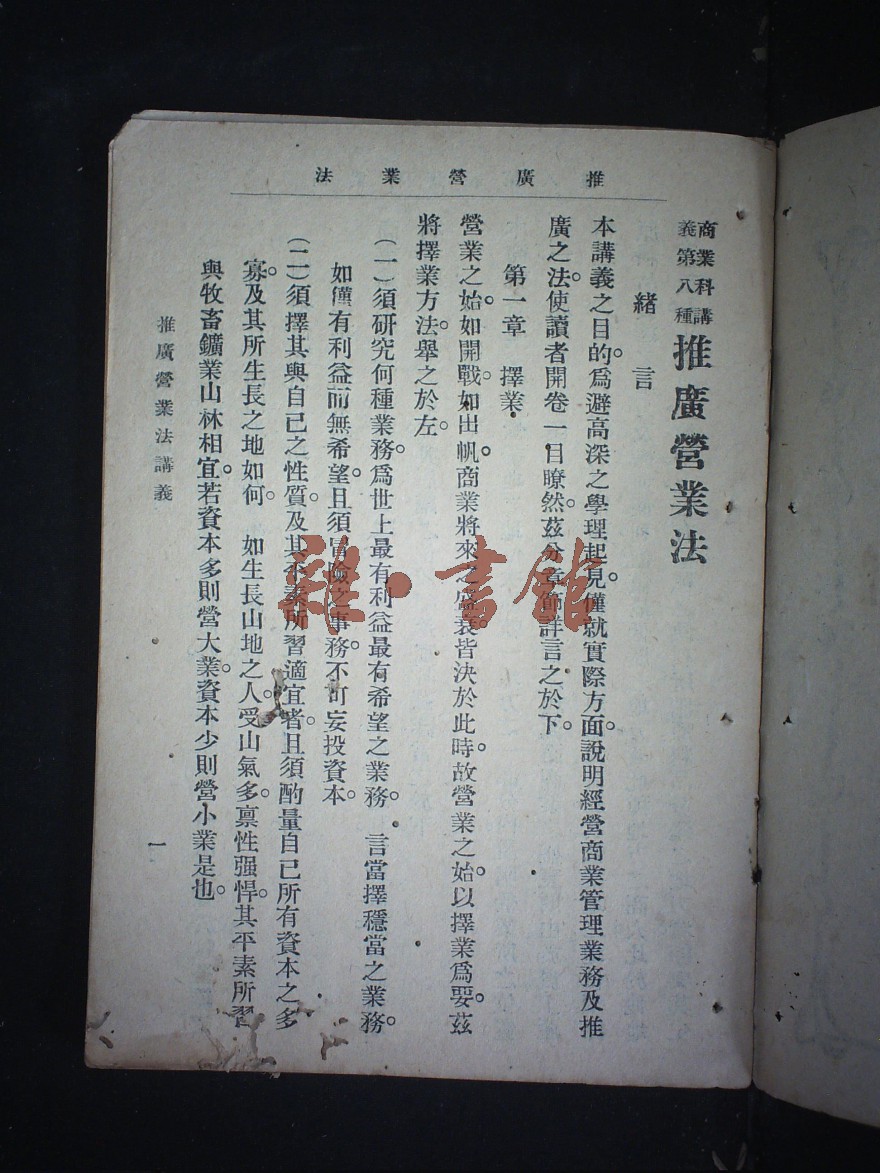 推廣營業法
商業科講
義第八種
推廣營業法
緒言
本講義之目的。爲避高深之學理起見。僅就實際方面。說明經營商業管理業務及推
廣之法。使讀者開卷一目瞭然。茲分章節詳言之於下。
第一章 擇業
營業之始。如開戰。如出帆。商業將來之盛衰。皆決於此時。故營業之始。以擇業爲要。茲
將擇業方法。舉之於左。
(一)須研究何種業務。爲世上最有利益最有希望之業務。 言當擇穩當之業務。
如僅有利益而無希望。且須冒險之事務。不可妄投資本。
(二)須擇其與自己之性質。及其平素所習適宜者。且須酌量自己所有資本之多
寡。及其所生長之地如何。 如生長山地之人。受山氣多。禀性强悍。其平素所習
與牧畜鑛業山林相宜。若資本多則營大業。資本少則營小業是也。
推廣營業法講義
一
雜·書館